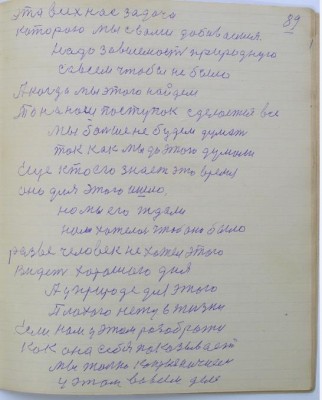 89
эта всех нас задача
которого мы с вами добиваемся
Надо зависимость природную
совсем чтобы не было
А когда мы этого найдем
То на наш поступок сделается все
мы больше не будем думать
так как мы до этого думали
Еще кто его знает это время
оно для этого ишло,
но мы его ждали
нам хотелось чтобы оно было
разве человек не хотел этого
видеть хорошего дня
А у природе для этого
плохого нету в жизни
Если нам у этом разобраться
как она себя показывает
мы только
у этом во всем деле